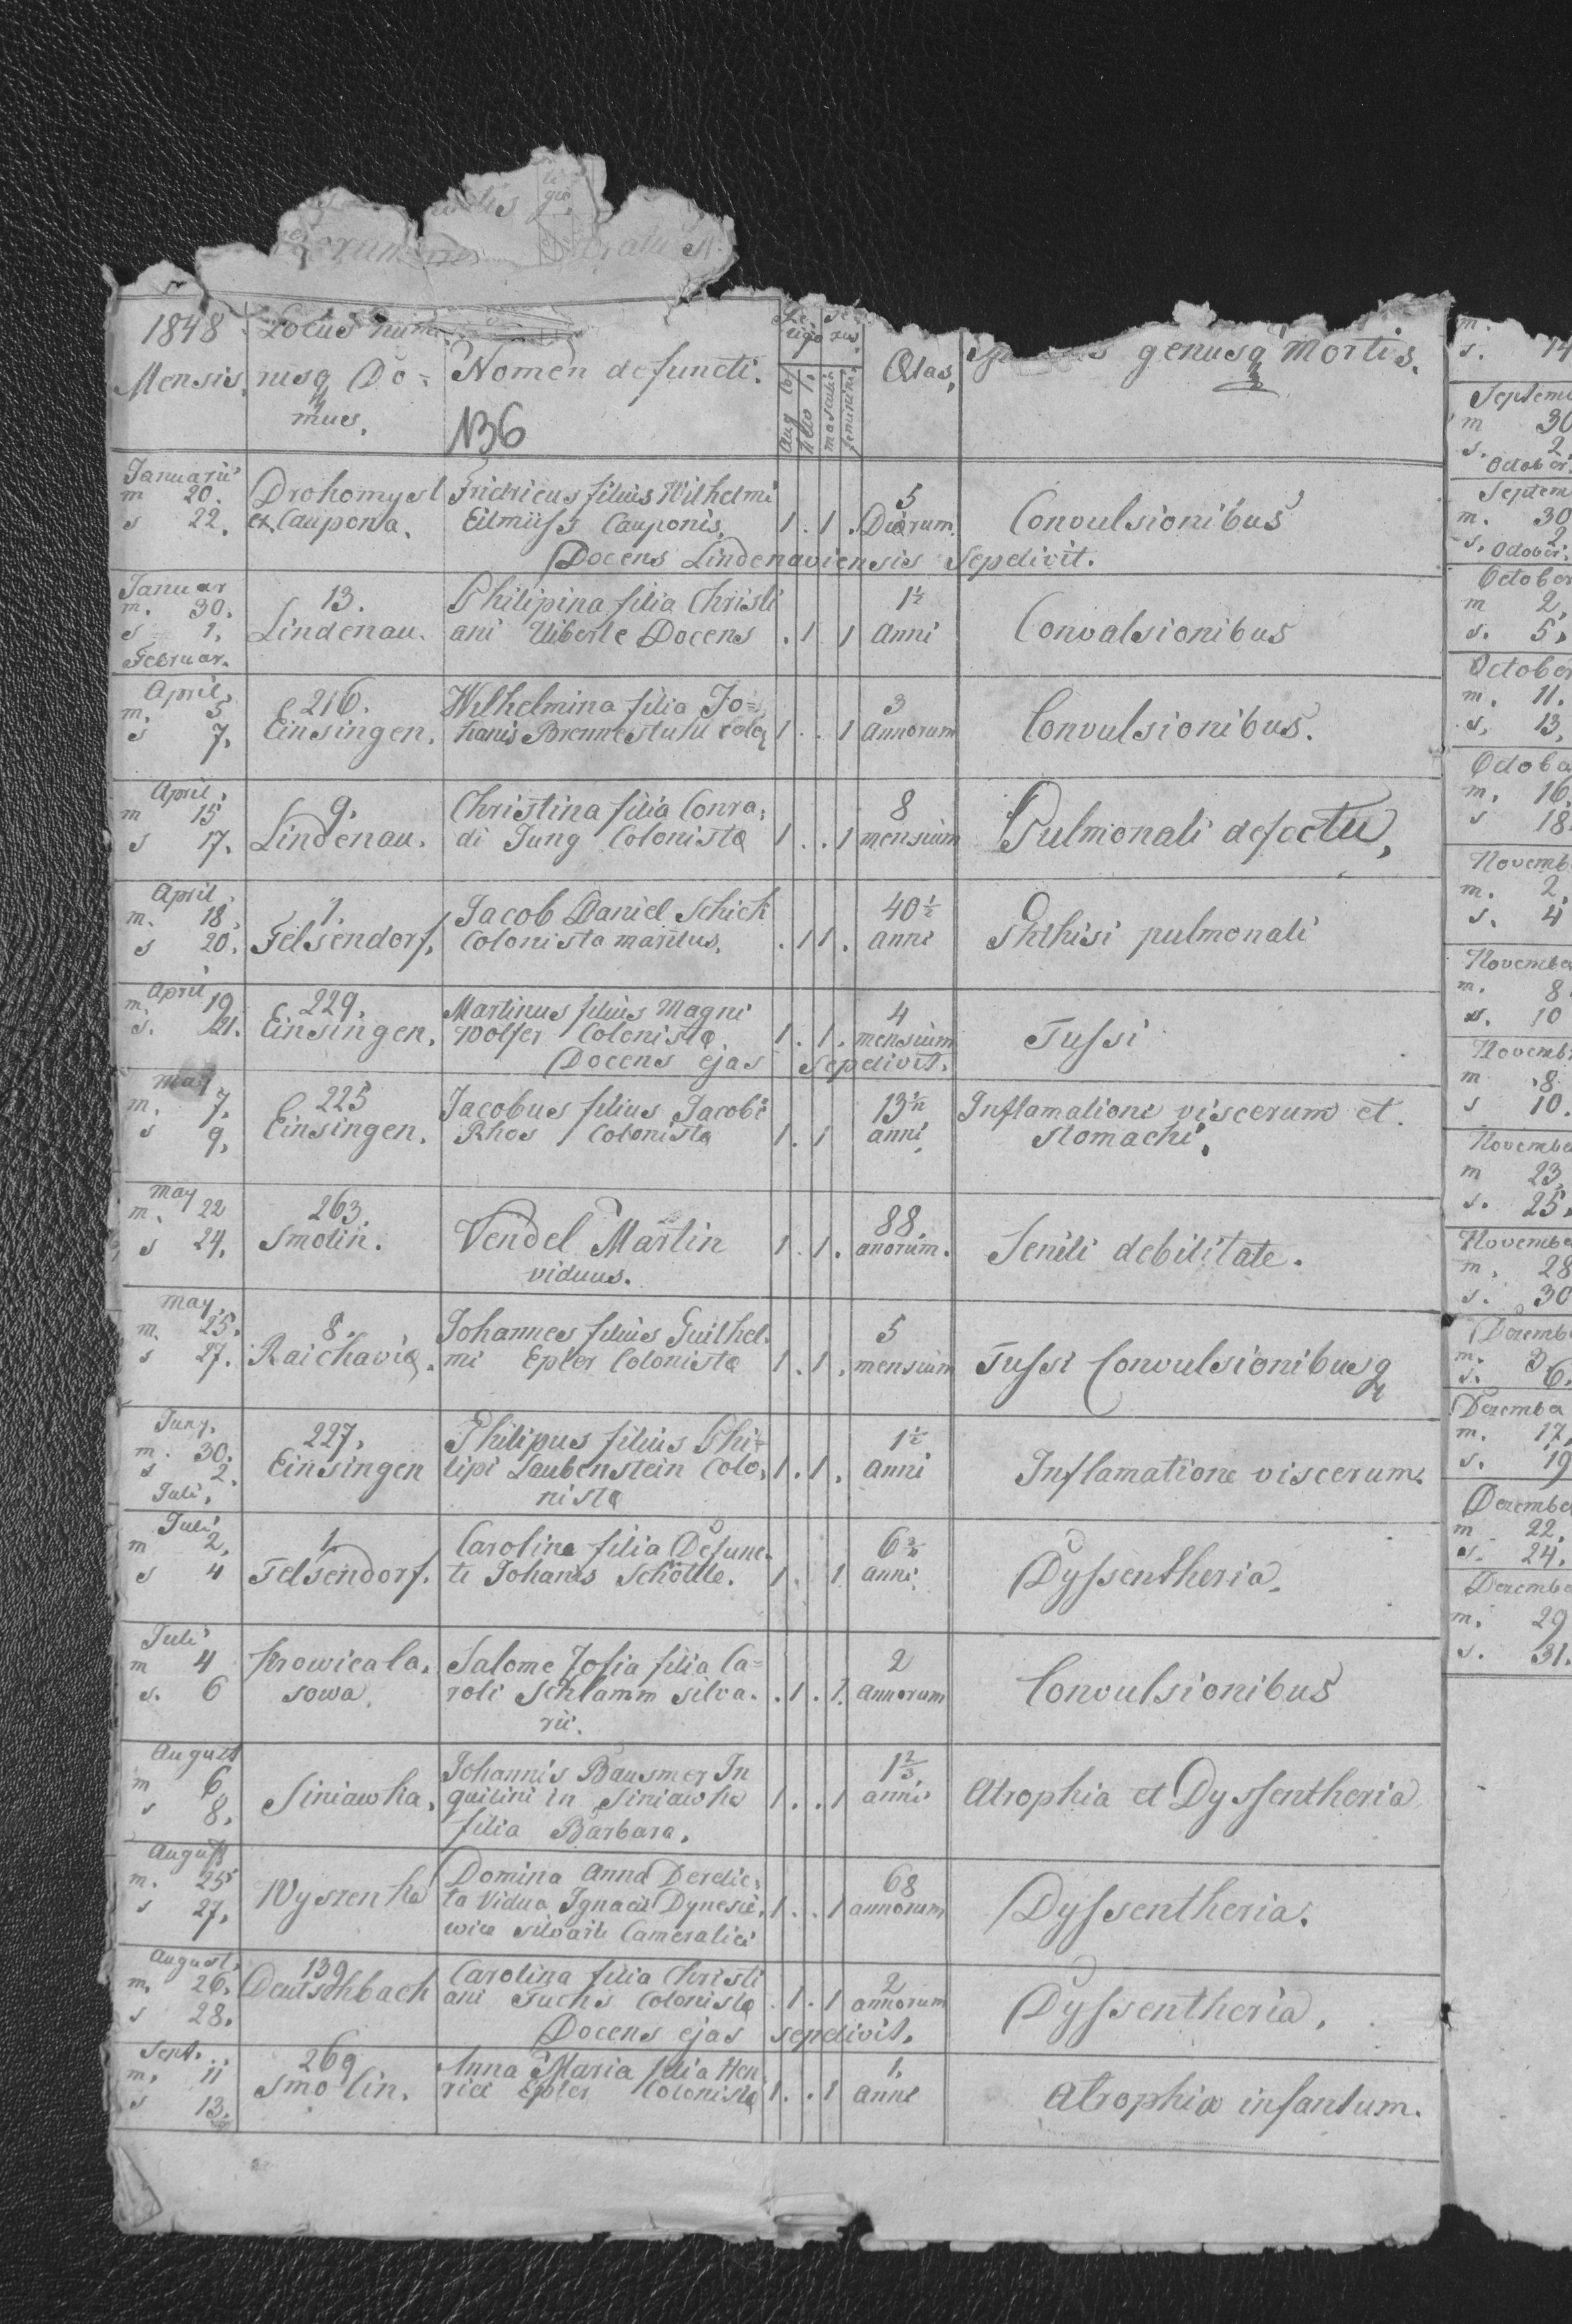 1848 Locus num
Mensis, rusq Do=
mus.
Nomen defuncti.
136
Re
ligio
Aug Cof
Helv
masculi
feminini
Ætas,
genusq Mortis.
Januarii
m 20.
s 22.
Drohomysl
ex Caupona.
Fridricus filius Wilhelmi
Eilmüss Cauponis,
1 . 1 .
5
Dierum.
Convulsionibus
Docens Lindenaviensis Sepelivit.
Januar
m. 30.
s 1.
Februar.
13.
Lindenau.
Philipina filia Christi
ani Uiberle Docens
. 1 . 1
1½
Anni
Convalsionibus
April,
m. 5
s 7.
216.
Einsingen.
Wilhelmina filia Jo=
hanis Brennestuhl Colo
1 . . 1
3
annorum
Convulsionibus.
April,
m 15
s 17.
9.
Lindenau.
Christina filia Conra,
di Jung Colonista
1 . . 1
8
mensium
Pulmonali defectu,
April,
m. 18,
s 20.
1.
Felsendorf,
Jacob Daniel Schick
Colonista maritus.
. 1 1 .
40½
anni
Phthisi pulmonali
April
m. 19
s. 21.
229.
Einsingen.
Martinus filius Magni
Wolfer Colonista
1 . 1 .
4
mensium
Tussi
Docens ejas sepelivit.
May
m. 7,
s 9,
225
Einsingen.
Jacobus filius Jacobi
Rhos Colonista
1 . 1
13½
anni,
Inflamatione viscerum et
stomachi,
May
m. 22
s 24.
263.
Smolin.
Vendel Martin
viduus.
1 . 1 .
88.
anorum.
Senili debilitate.
May,
m. 25.
s 27.
8.
Raichavia.
Johannes filius Guilhel.
mi Epler Colonista
1 . 1 .
5
mensium
Tussi Convulsionibusq
Juny.
m. 30.
s 2.
Juli,
227,
Einsingen
Philipus filius Phi=
lipi Laubenstein Colo,
nista
1 . 1 .
1½
anni
Inflamatione viscerum.
Juli
m 2,
s 4
1.
Felsendorf.
Carolina filia Defunc.
ti Johanis Schöttle.
1 . 1
anni,
Dyssentheria.
Juli
m 4
s. 6
Krowicala,
sowa.
Salome Zofia filia Ca=
roli Schlamm silva.
rii.
. 1 . 1.
2
annorum
Convulsionibus
August
m 6,
s 8.
Siniawka,
Johannis Bausmer In
quilini in Siniawka
filia Barbara,
1 . . 1
1⅔
anni
Atrophia et Dyssentheria
August
m. 25
s 27,
Wysrenka
Domina Anna Derelic,
ta Vidua Ignacii Dynesie,
wica silvarii Cameralici
1 . . 1
68
annorum
Dyssentheria.
August,
m. 26.
s 28.
139
Deutschbach
Carolina filia Christi
ani Fuchs Colonista
. 1 . 1
2
annorum
Dyssentheria,
Docens ejas sepelivit.
Sept.
m. 11
s 13.
269
Smolin.
Anna Maria filia Hen
rici Epler Colonista
1 . . 1
1.
Anni
Atrophia infantum.
m.
s. 14
Septem
m 30
s. 2
October.
Septem
m. 30
s. 2
October.
October
m 2,
s. 5.
October
m. 11.
s. 13,
Octobe
m. 16.
s 18.
Novemb
m. 2,
s. 4
Novembe
m. 8.
s. 10
Novemb
m 8
s 10.
Novembe
m 23,
s. 25,
Novembe
m. 28
s. 30
Dezemb
m. 3.
s. 6.
Dezembe
m. 17,
s. 19
Dezembe
m 22.
s. 24.
Dezembe
m. 29
s. 31.